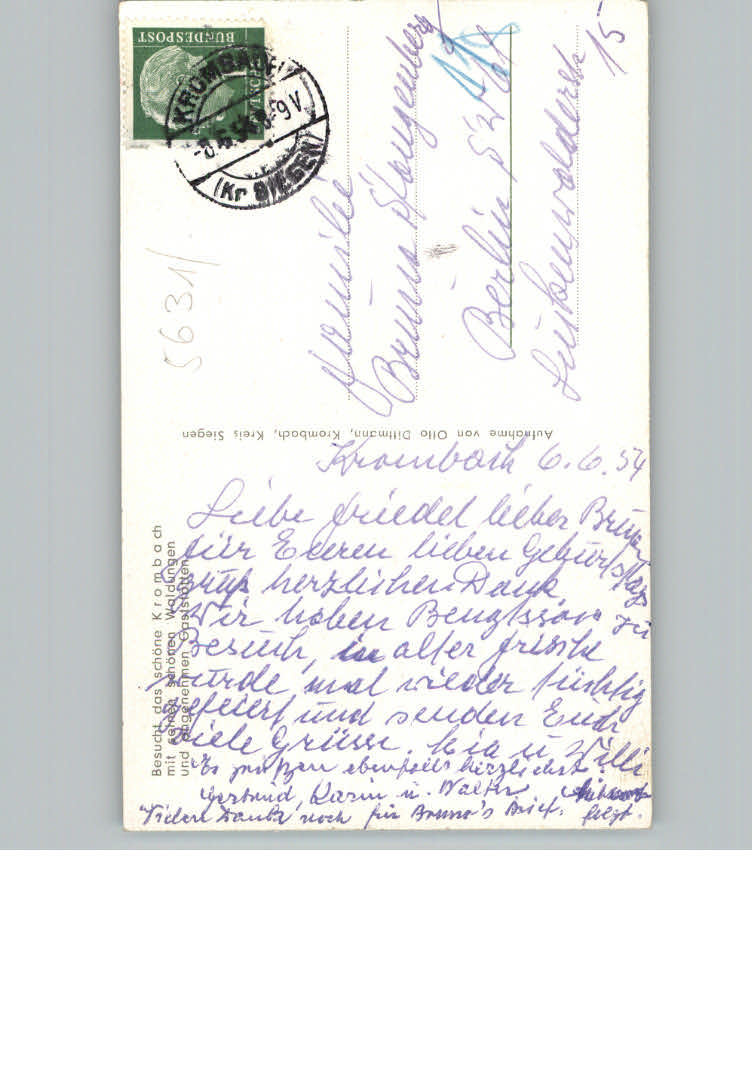 BUNDESPOST
KROMBACH
(Kr SIEGEN)
15
Familie
Bruno Stangenberg
Berlin
5631/
Aufnahme von Otto Dittmann, Krombach, Kreis Siegen
Besucht das schöne Krombach
mit seinen schönen Waldungen
und angenehmen Gaststätten
Krombach 6.6.54
Liebe Friedel lieber Bruno
für Eueren lieben Geburtstags
gruß herzlichen Dank
Wir haben Bengtsson zu
Besuch, in alter Frische
wurde mal wieder tüchtig
gefeiert und senden Euch
viele Grüsse. Mia u Willi
Es grüßen ebenfalls herzlichst
Gertrud, Karin u. Walter
Vielen Dank noch für Bruno's Brief. Antwort
folgt.